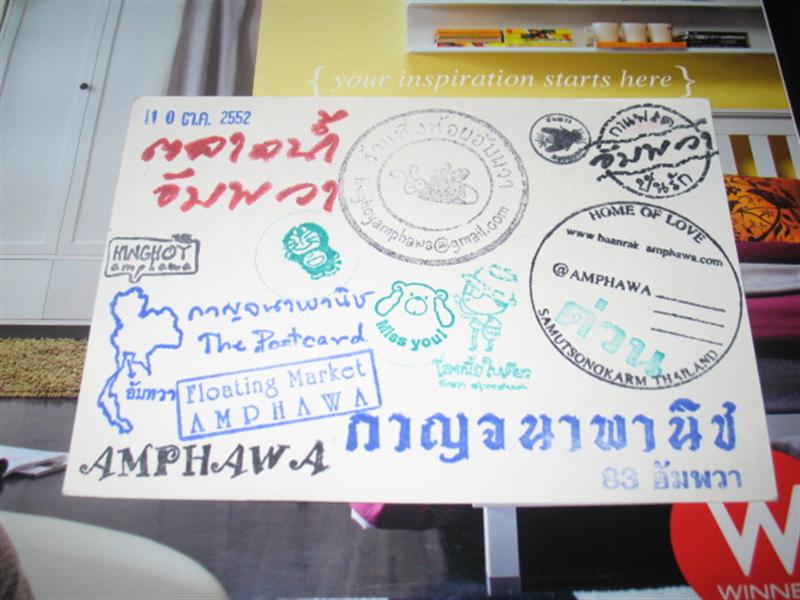 { your inspiration starts here }
10 ต.ค. 2552
ตลาดน้ำ
อัมพวา
ร้านหิ่งห้อยอัมพวา
hinghoyamphawa@gmail.com
กาแฟรัก
อัมพวา
ปันรัก
HOME OF LOVE
www.baanrak amphawa.com
@AMPHAWA
ด่วน
SAMUTSONGKARM THAILAND
HINGHOY
amphawa
กาญจนาพานิช
The Postcard
Miss you!
อัมพวา
Floating Market
AMPHAWA
AMPHAWA
กาญจนาพานิช
83 อัมพวา
W
WINNE